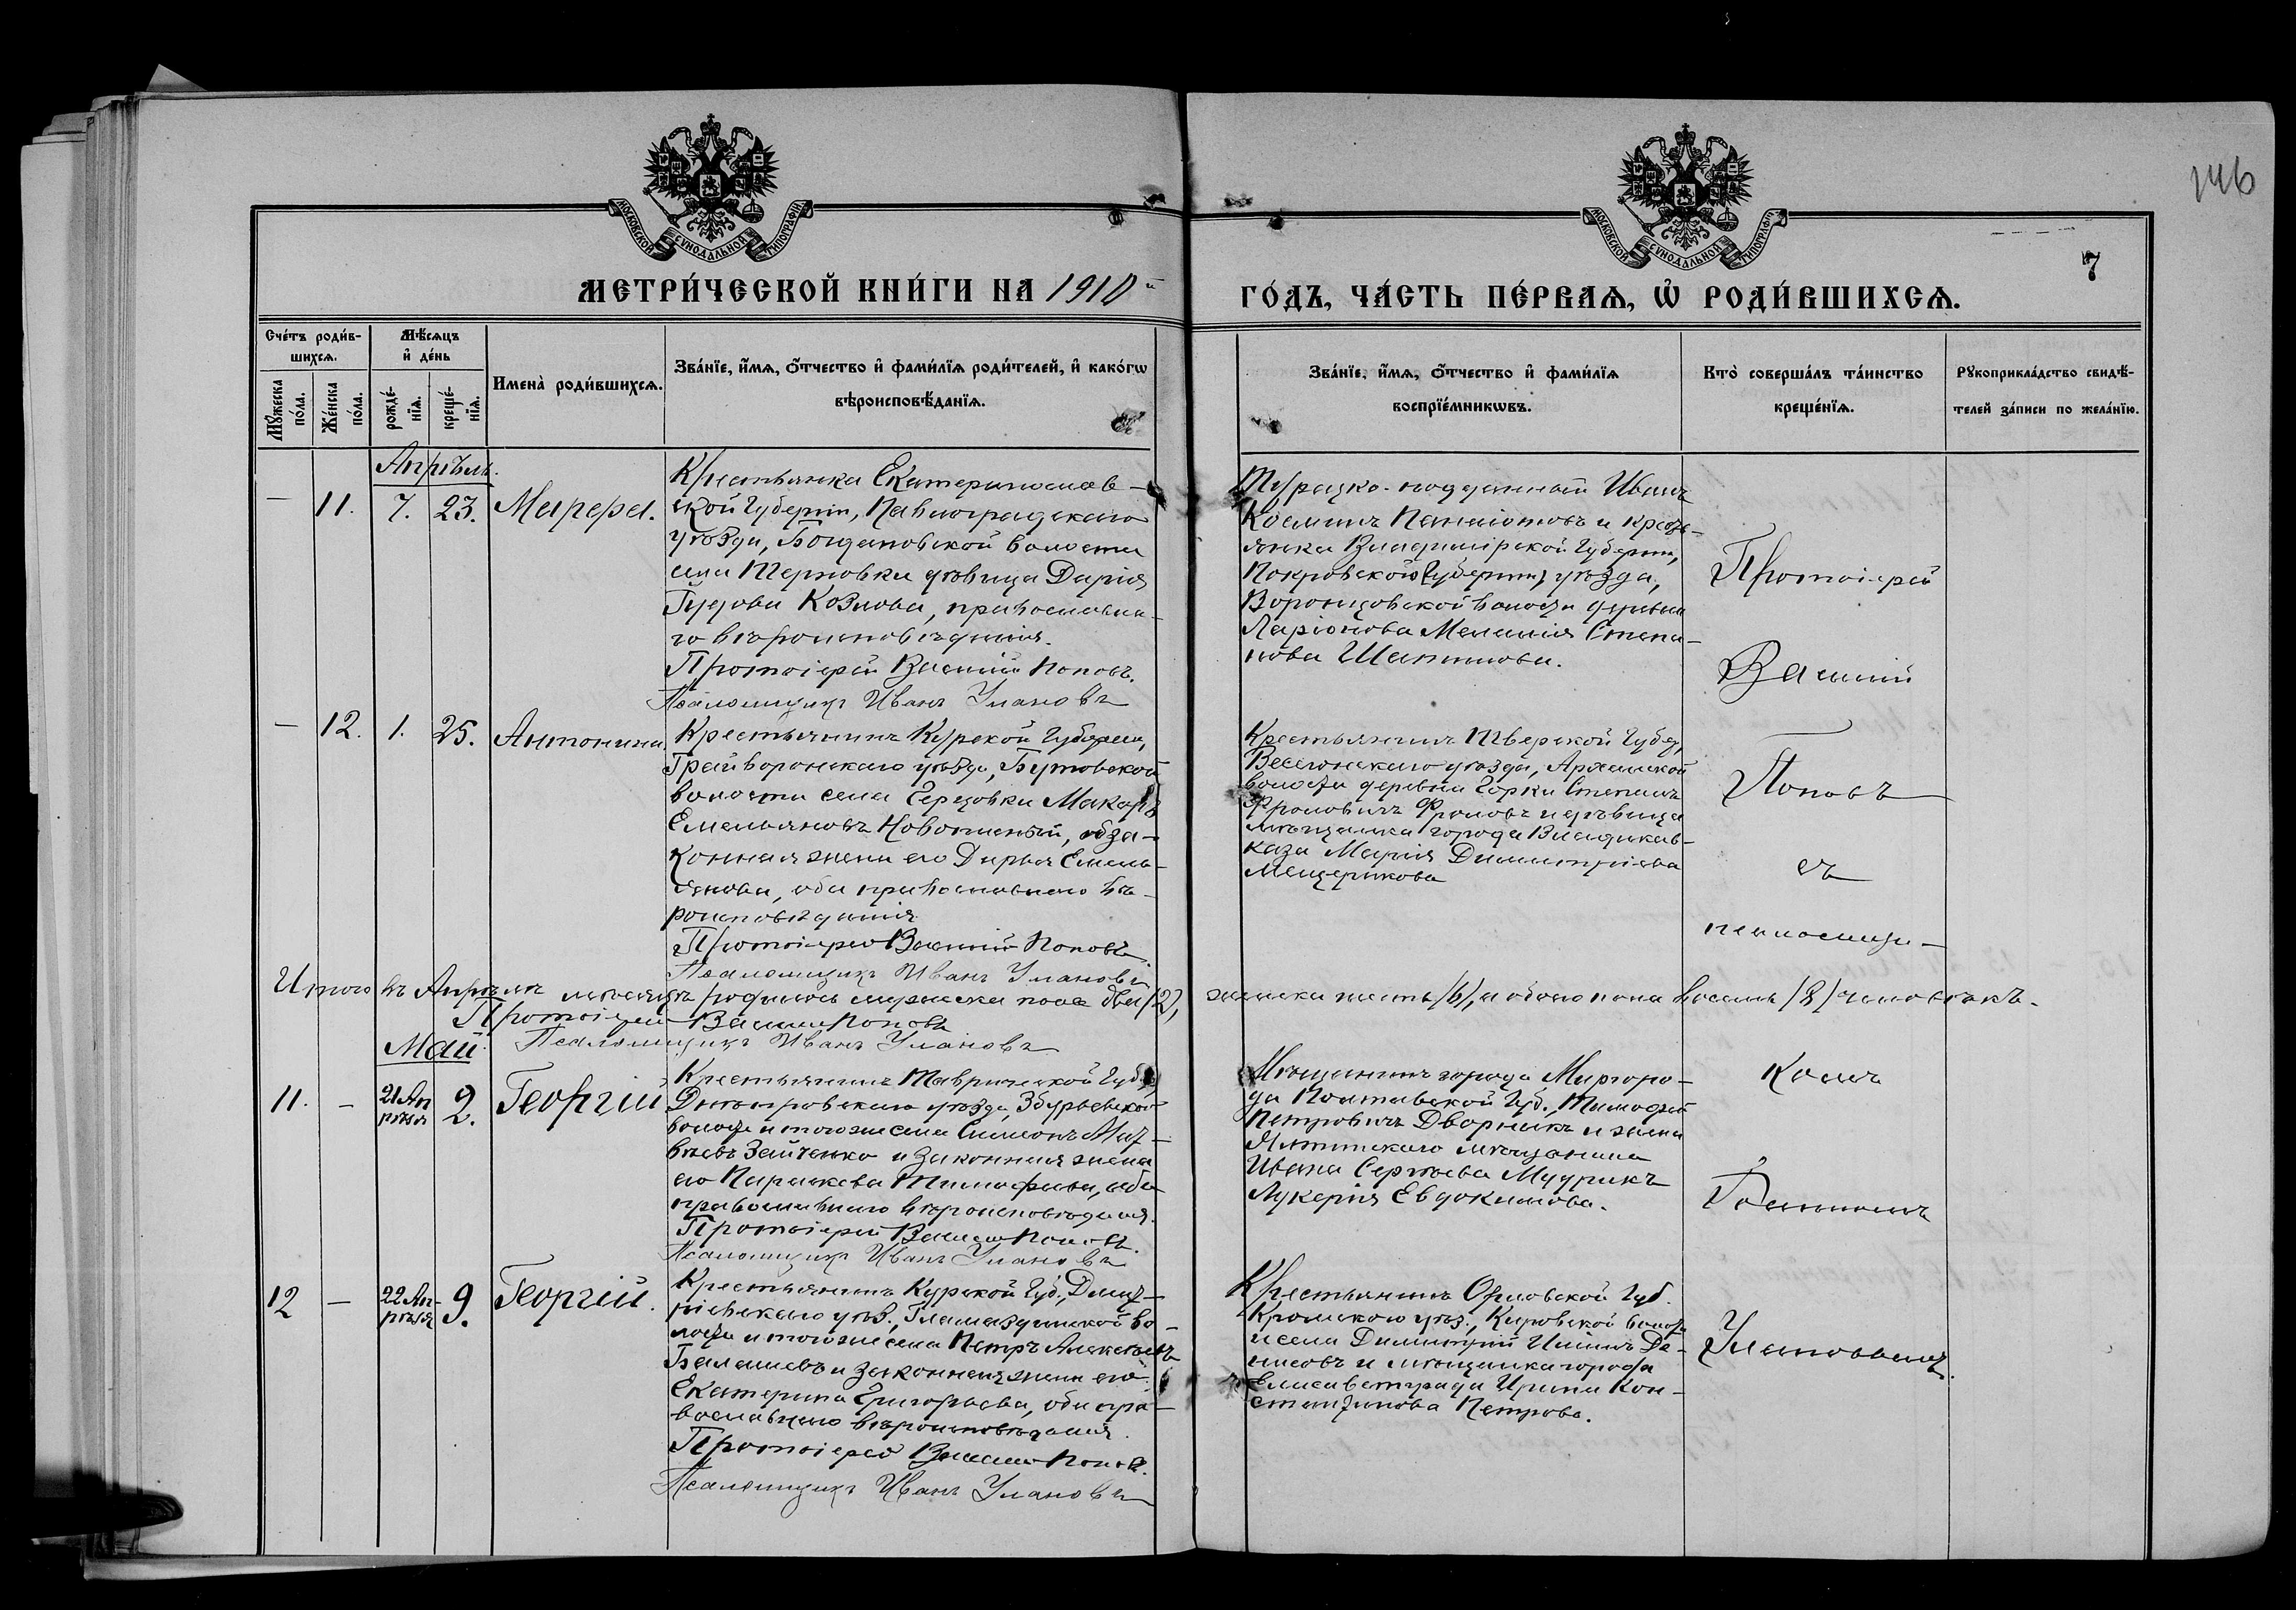 146
7
МОСКОВСКОЙ СѴНОДАЛЬНОЙ ТИПОГРАФІИ
МОСКОВСКОЙ СѴНОДАЛЬНОЙ ТИПОГРАФІИ
МЕТРИ́ЧЕСКОЙ КНИ́ГИ НА 1910й
ГО́ДЪ, ЧА́СТЬ ПЕ́РВАѦ, Ѡ҆ РОДИ́ВШИХСѦ.
Сче́тъ роди́в-
шихсѧ.
Мꙋ́жеска по́ла.
Же́нска по́ла.
Мѣ́сѧцъ
и҆ де́нь
рожде́-
нїѧ.
креще́-
нїѧ.
Имена̀ роди́вшихсѧ.
Зва́нїе, и҆́мѧ, ѻ҆́тчество и҆ фами́лїѧ роди́телей, и҆ како́гѡ
вѣроисповѣ́данїѧ.
Зва́нїе, и҆́мѧ, ѻ҆́тчество и҆ фами́лїѧ
воспрїе́мникѡвъ.
Кто̀ соверша́лъ та́инство
креще́нїѧ.
Рꙋкоприкла́дство свидѣ́-
телей за́писи по жела́нїю.
Апрѣль.
— 11. 7. 23.
Крестьянка Екатеринослав-
ской Губерніи, Павлоградскаго
уѣзда, Богдановской волости
села Терновки дѣвица Дарія
Козлова, православна-
го вѣроисповѣданія.
Протоіерей Василій Поповъ.
Псаломщикъ Иванъ Улановъ
Турецко-подданный Иванъ
Космичъ Панаіотовъ и крест-
янка Владимірской Губерніи,
Покровской (Губерніи) уѣзда,
Воронцовской волости деревни
Ларіонова Меланія Степа-
нова Шапилова.
— 12. 1. 25. Антонина
Крестьянинъ Курской Губерніи,
Грайворонскаго уѣзда, Бутовской
волости села Герцовки Макаръ
Емельяновъ и за-
конная жена его Дарья Емель-
янова, оба православнаго вѣ-
роисповѣданія
Протоіерей Василій Поповъ.
Псаломщикъ Иванъ Улановъ
Крестьянинъ Тверской Губер,
Весьегонскаго уѣзда,
волости деревни Горки Степанъ
Фроловичъ Фроловъ и дѣвица
мѣщанка города Владикав-
каза Марія Димитріева
Мещерикова
Итого въ Апрѣлѣ мѣсяцѣ родилось мужеска пола два /2/,
женска шесть /6/, а обоего пола восемь /8/ человѣкъ.
Протоіерей Василій Поповъ
Псаломщикъ Иванъ Улановъ
Май.
11. — 21 Ап
рѣля 2. Георгій
Крестьянинъ Таврической Губ.,
Днѣпровскаго уѣзда, Збурьевской
волости и того же села Симеонъ Мат-
вѣевъ Зайченко и законная жена
его Параскева Тимофеева, оба
православнаго вѣроисповѣданія.
Протоіерей Василій Поповъ.
Псаломщикъ Иванъ Улановъ
Мѣщанинъ города Миргоро-
да Полтавской Губ., Тимофей
Петровичъ Дворникъ и жена
Ялтинскаго мѣщанина
Ивана Сергѣева Мудрикъ
Лукерія Евдокимова.
12 — 22 Ап-
рѣля 9. Георгій.
Крестьянинъ Курской Губ., Дмит-
ріевскаго уѣз., Гламаздинской во-
лости и того же села Петръ Алексѣевъ
Балашевъ и законная жена его
Екатерина Григорьева, оба пра-
вославнаго вѣроисповѣданія.
Протоіерей Василій Поповъ.
Псаломщикъ Иванъ Улановъ
Крестьянинъ Орловской Губ.
Кромскаго уѣз., волости
и села Димитрій Ильинъ Де-
нисовъ и мѣщанка города
Елисаветграда Ирина Кон-
стантинова Петрова.
Протоіерей
Василій
Поповъ
съ
псаломщи-
комъ
Іоанномъ
Улановымъ.